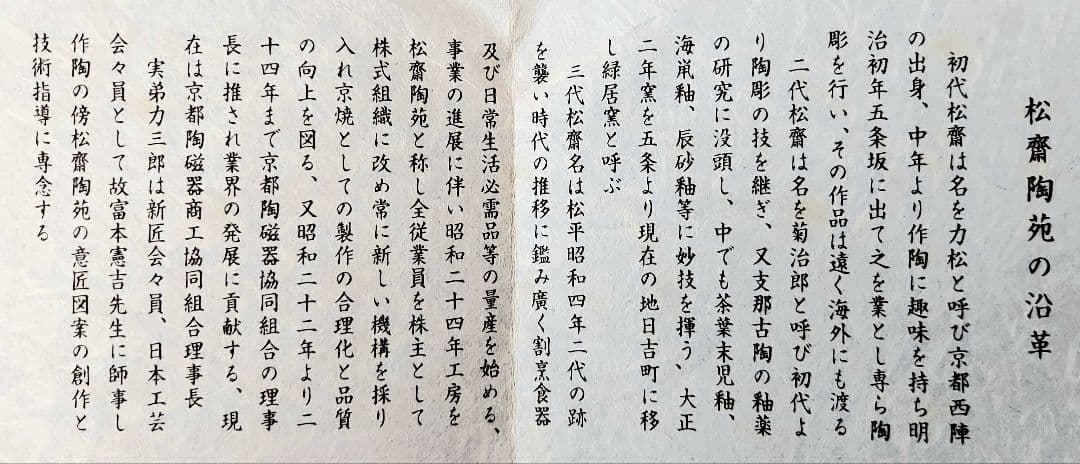 松齋陶苑の沿革
初代松齋は名を力松と呼び京都西陣
の出身、中年より作陶に趣味を持ち明
治初年五条坂に出て之を業とし専ら陶
彫を行い、その作品は遠く海外にも渡る
二代松齋は名を菊治郎と呼び初代よ
り陶彫の技を継ぎ、又支那古陶の釉薬
の研究に没頭し、中でも茶葉末児釉、
海鼡釉、辰砂釉等に妙技を揮う、大正
二年窯を五条より現在の地日吉町に移
し緑居窯と呼ぶ
三代松齋名は松平昭和四年二代の跡
を襲い時代の推移に鑑み廣く割烹食器
及び日常生活必需品等の量産を始める、
事業の進展に伴い昭和二十四年工房を
松齋陶苑と称し全従業員を株主として
株式組織に改め常に新しい機構を採り
入れ京焼としての製作の合理化と品質
の向上を図る、又昭和二十二年より二
十四年まで京都陶磁器協同組合の理事
長に推され業界の発展に貢献する、現
在は京都陶磁器商工協同組合理事長
実弟力三郎は新匠会々員、日本工芸
会々員として故富本憲吉先生に師事し
作陶の傍松齋陶苑の意匠図案の創作と
技術指導に専念する